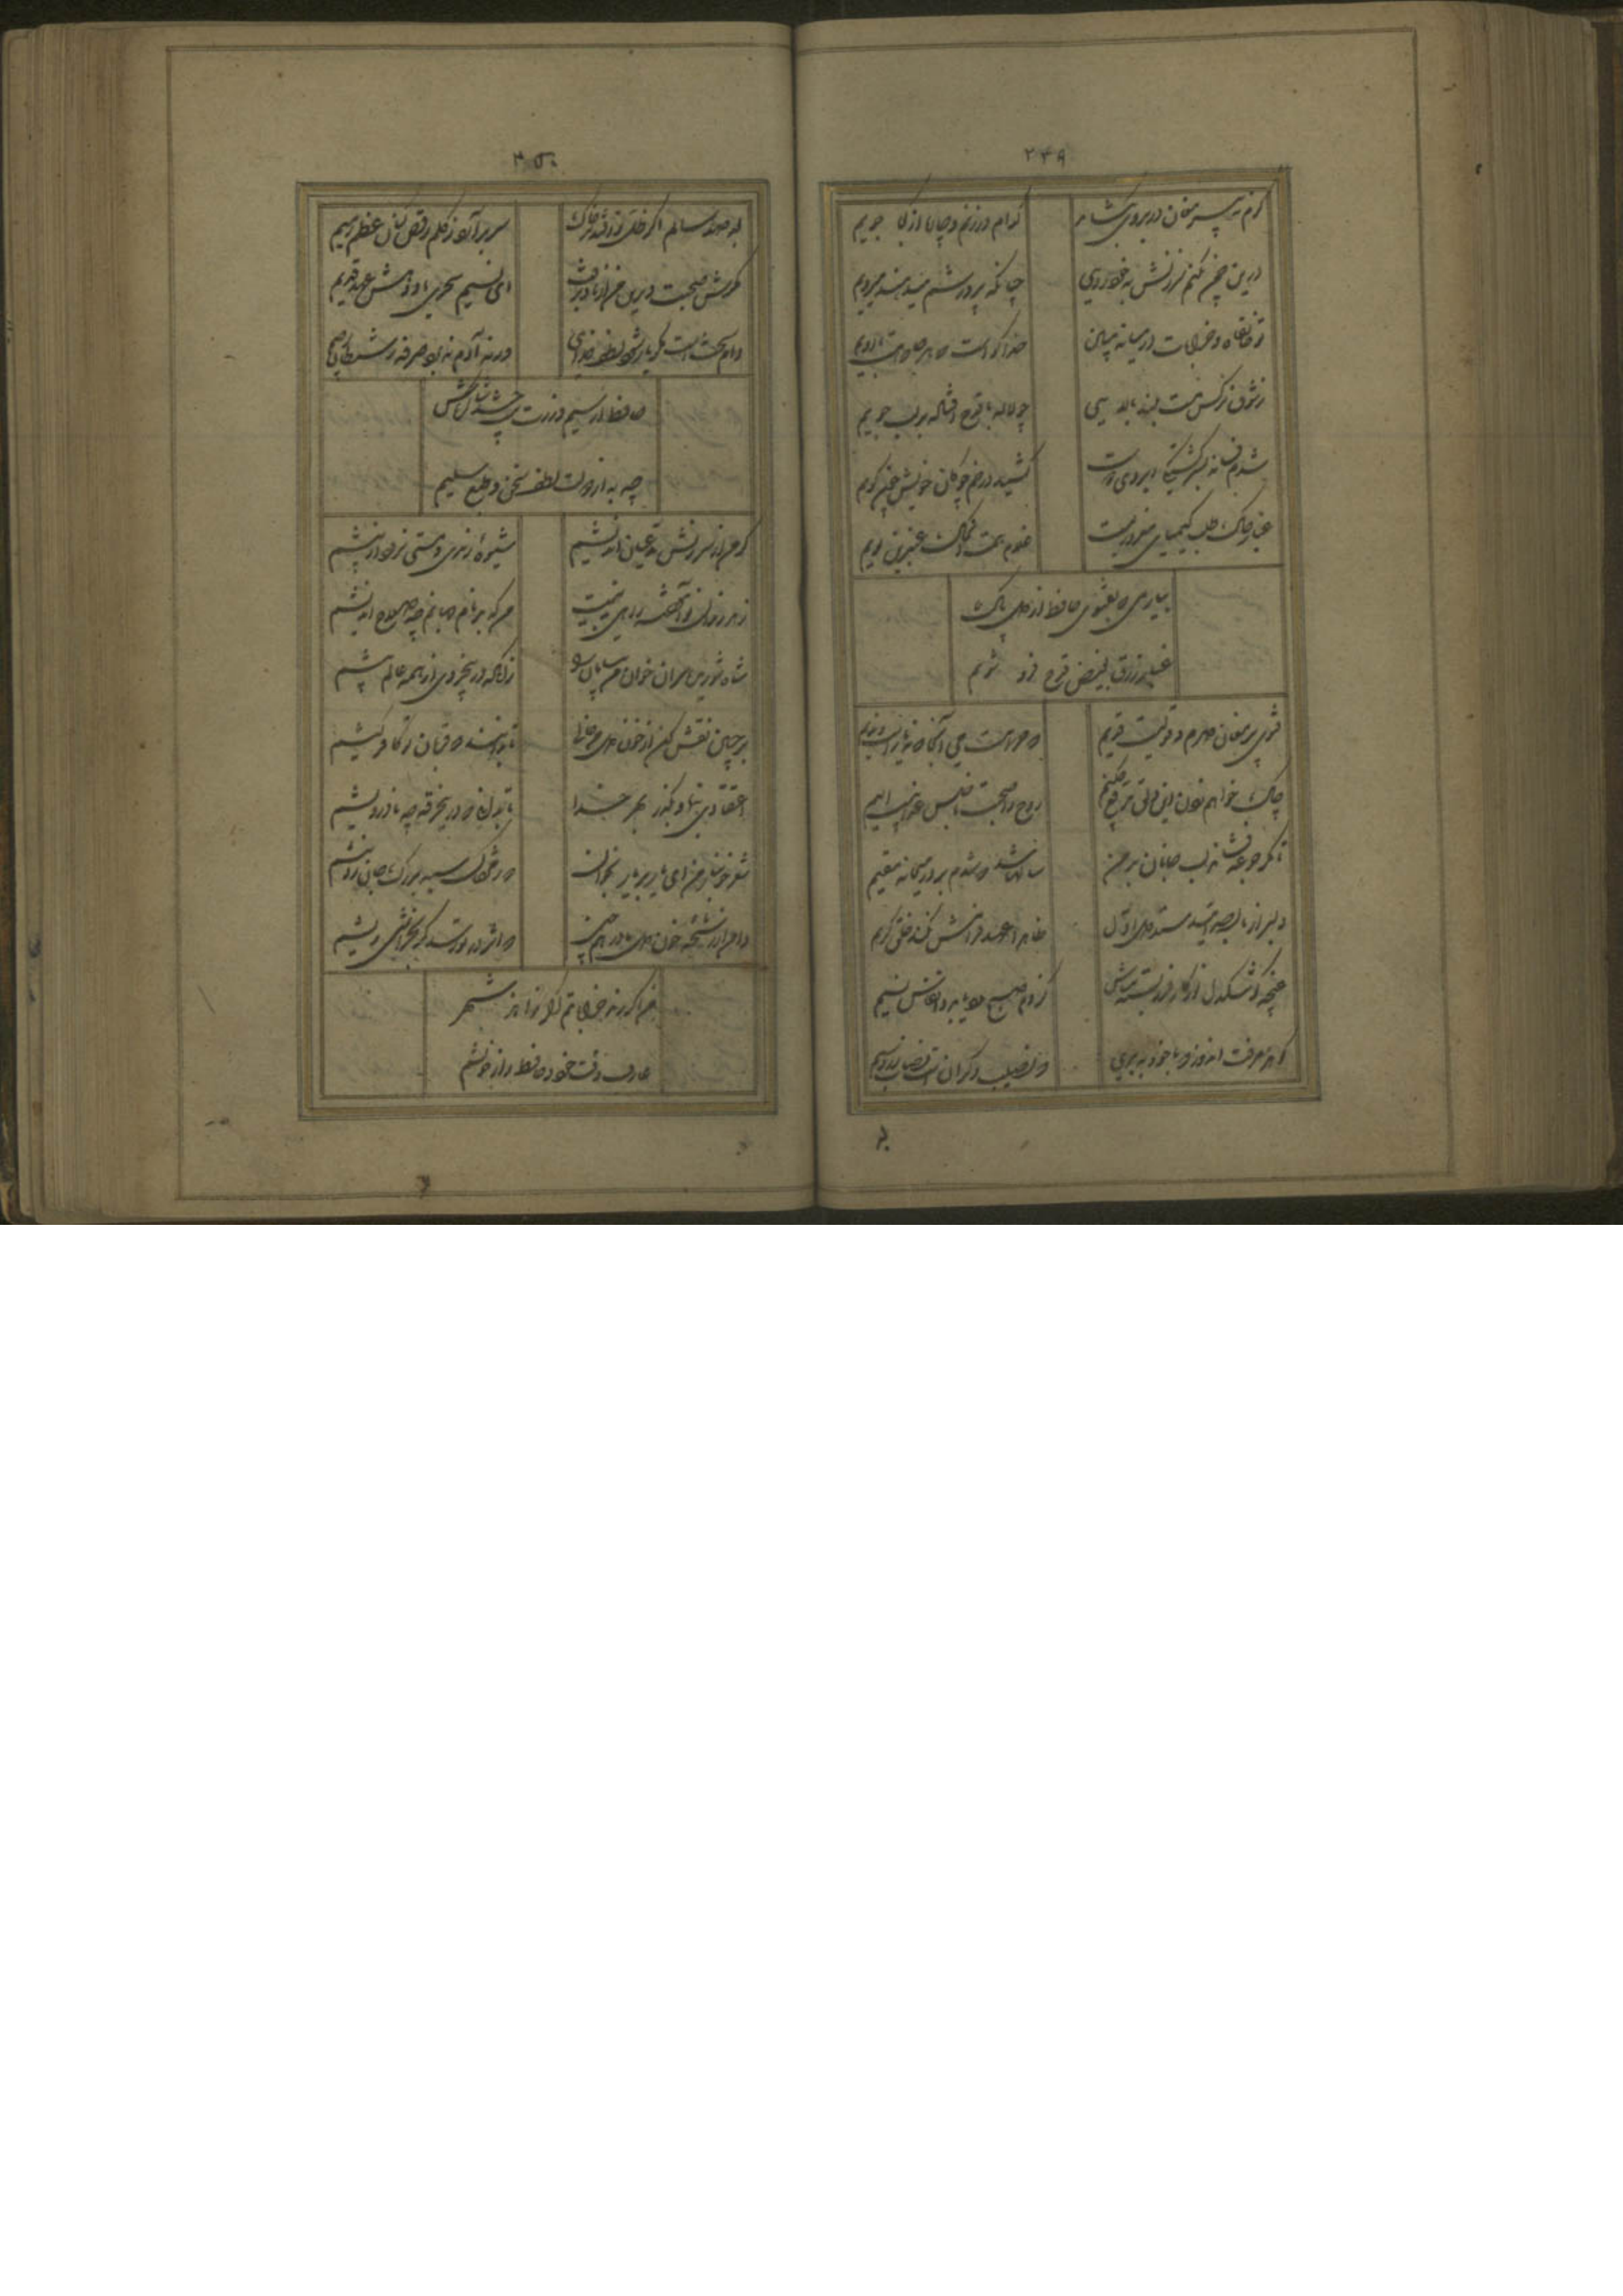 ۲۴۹
گرم نه پیر مغان در بروی بکشاید
کدام در بزنم چاره از کجا جویم
درین چمن نکنم سرزنش به خود رویی
چنانکه پرورشم میدهند میرویم
تو خانقاه و خرابات در میانه مبین
خدا گواست که هر جا که هست با اویم
ز شوق نرگس مست بلند بالایی
چو لاله با قدح افتاده بر لب جویم
شدم فسانه بسرگشتگی و ابروی دوست
کشید در خم چوکان خویش چون گویم
غبار خاک طلب کیمیای بهروزیست
غلام دولت آن خاک عنبرین بویم
بیار می که بفتوی حافظ از دل پاک
غبار زرق بفیض قدح فرو شویم
فتوی پیر مغان دارم و قولیست قدیم
که حرامست می آنجا که نه یارست ندیم
چاک خواهم زدن این دلق ریایی چکنم
روح را صحبت ناجنس عذابیست الیم
تا مگر جرعه فشاند لب جانان بر من
سالها شد که شدم بر در میخانه مقیم
دلبر از ما بصد امید ستد اول دل
ظاهرا عهد فرامش نکند خلق کریم
غنچه گو تنگدل از کار فروبسته مباش
کز دم صبح مدد یابی و انفاس نسیم
گوهر معرفت اندوز که با خود ببری
که نصیب دگرانست نصاب زر و سیم
۳۵۰
بعد صد سال اگر بر سر خاکم گذری
سر برآرد ز گلم رقص کنان عظم رمیم
مگرش صحبت دیرین من از یاد برفت
ای نسیم سحری یاد دهش عهد قدیم
دام سختست مگر یار شود لطف خدای
ورنه آدم نبرد صرفه ز شیطان رجیم
حافظ ار سیم و زرت نیست چه شد شاکر باش
چه به از دولت لطف سخن و طبع سلیم
گر من از سرزنش مدعیان اندیشم
شیوه رندی و مستی نرود از پیشم
زهد رندان نوآموخته راهی بدهیست
من که بدنام جهانم چه صلاح اندیشم
شاه شوریده سران خوان من بی سامان را
زانکه در بیخردی از همه عالم بیشم
بر جبین نقش کن از خون دل من خالی
تا بدانند که قربان تو کافر کیشم
اعتقادی بنما و بگذر بهر خدا
تا بدانی که درین خرقه چه نادرویشم
شعر خونبار من ای باد بر یار بخوان
که ز مژگان سیه بر رگ جان زد نیشم
دامن از رشحه خون دل ما در هم چین
که اثر در تو رسد گر بخراشی ریشم
من اگر رندم خراباتم اگر زاهد شهر
عارف وقت خود حافظ راز خویشم